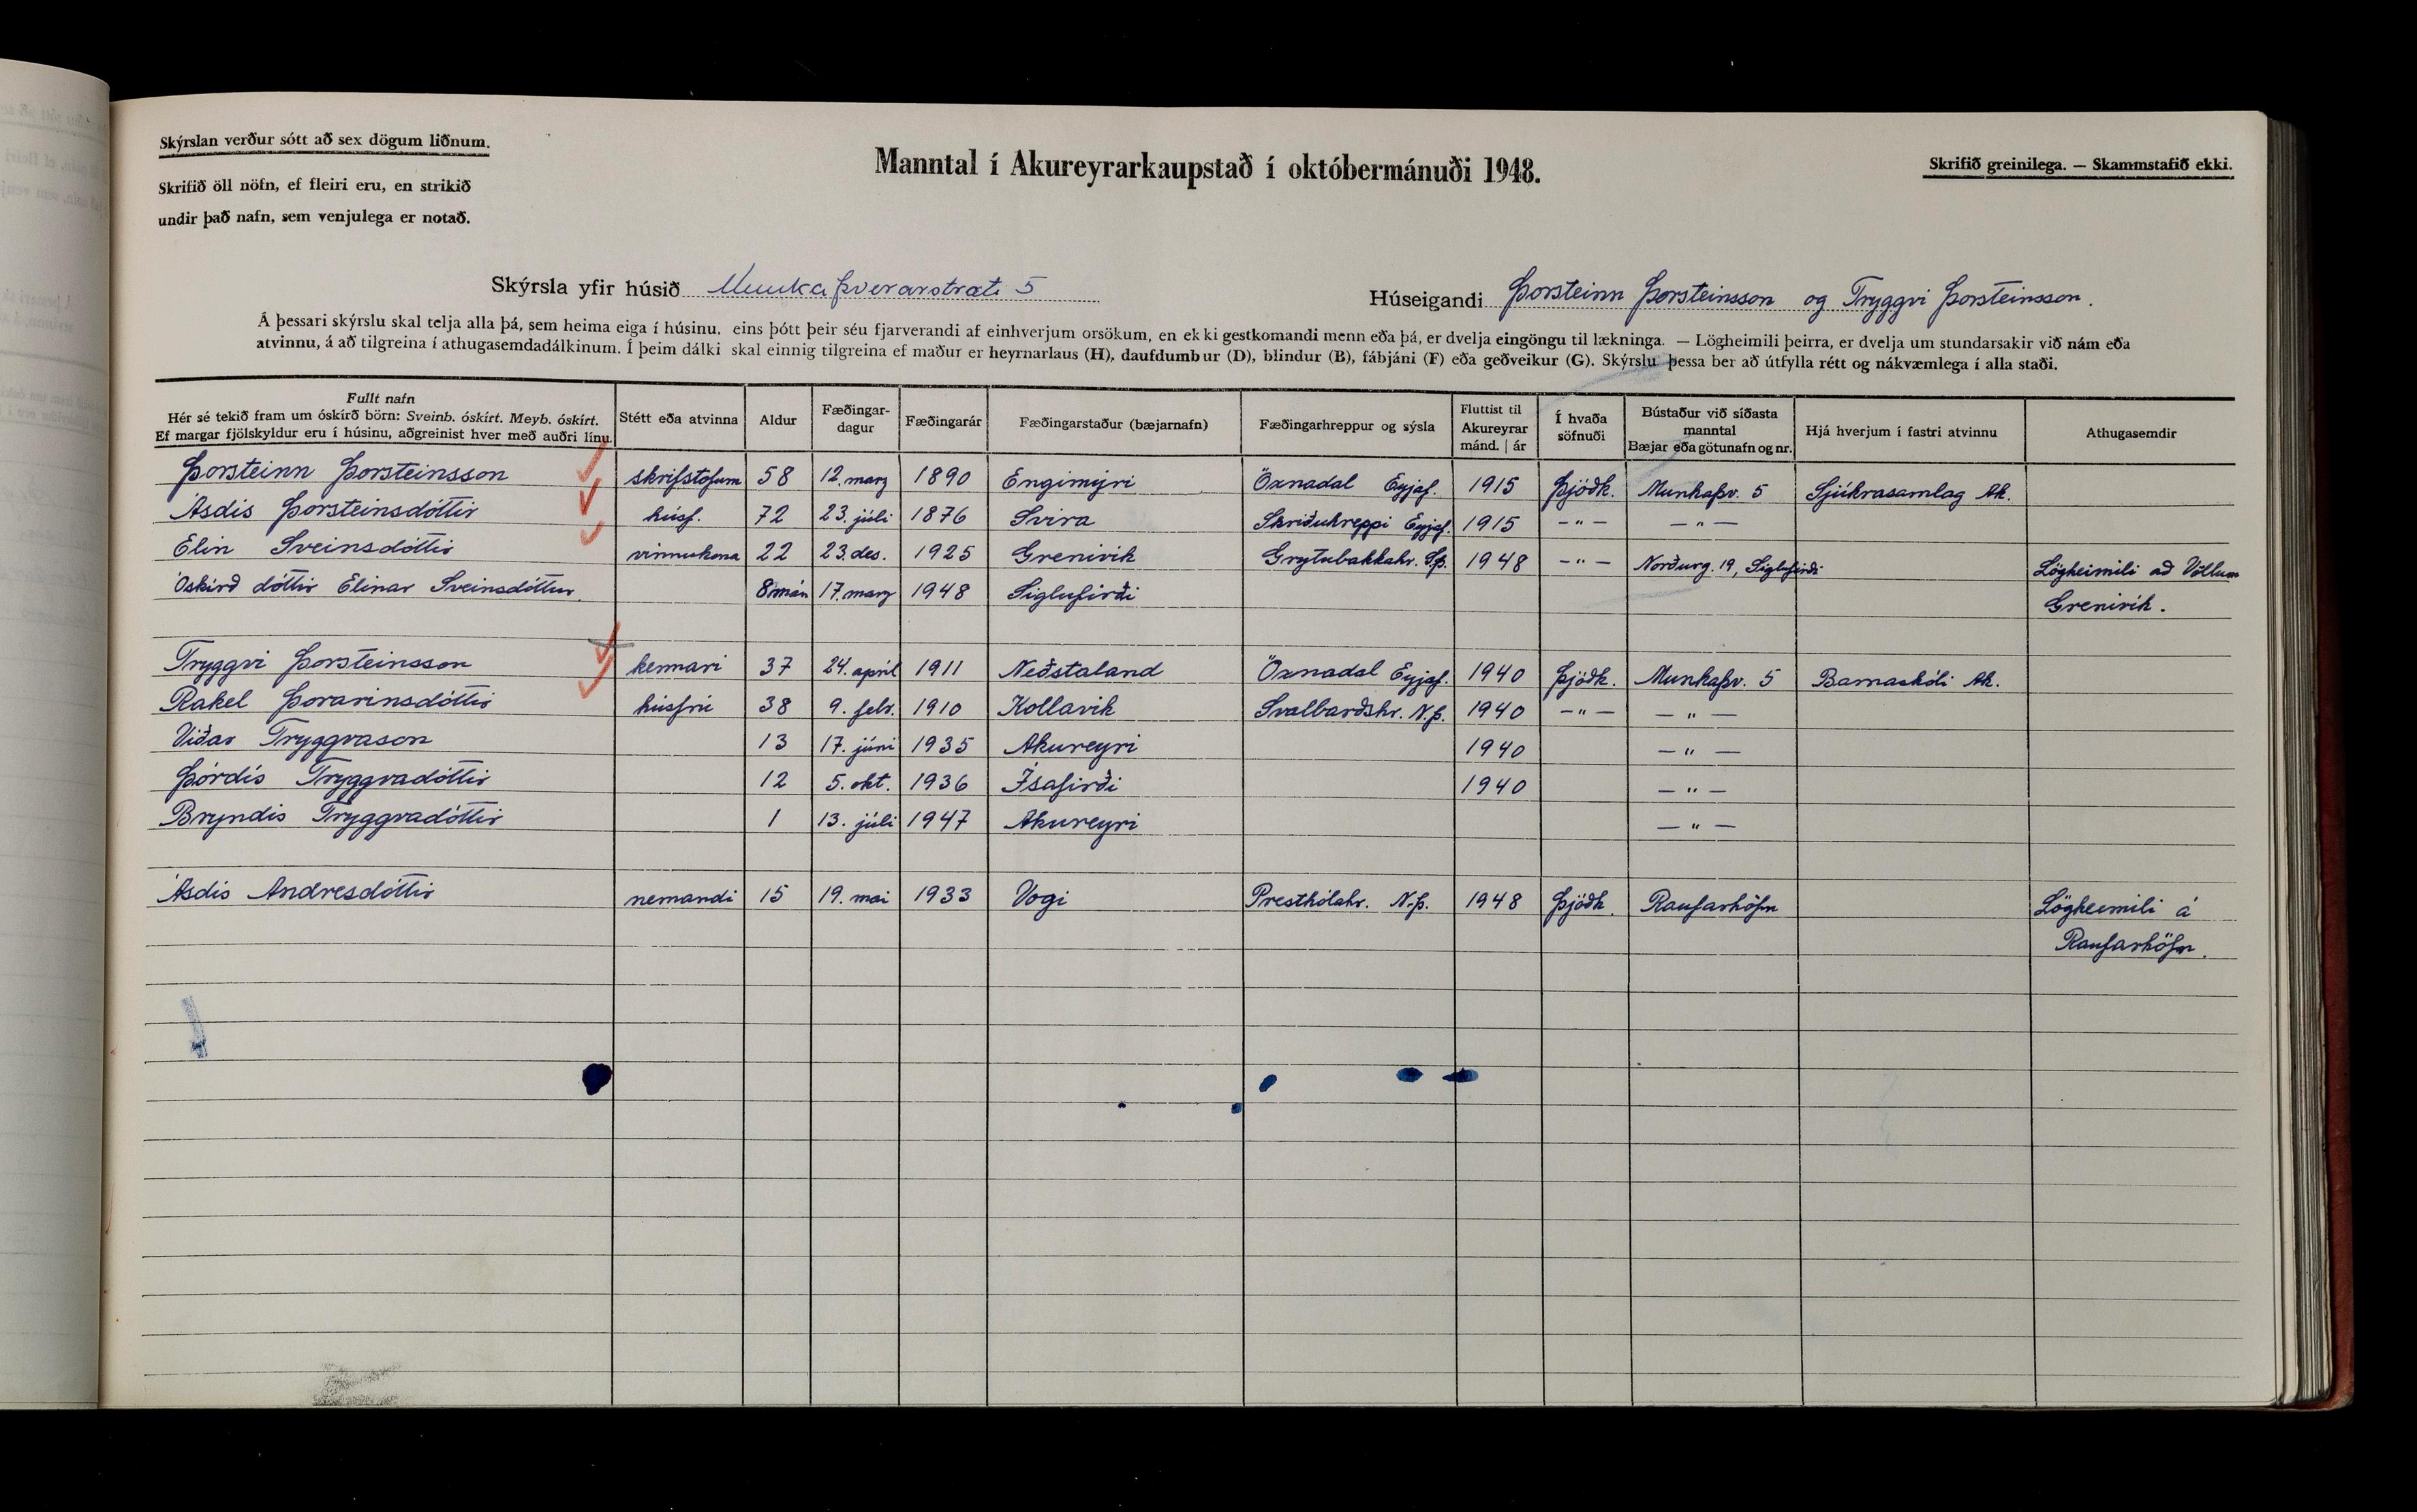 Skýrslan verður sótt að sex dögum liðnum.
Skrifið öll nöfn, ef fleiri eru, en strikið
undir það nafn, sem venjulega er notað.
Manntal í Akureyrarkaupstað í októbermánuði 1948.
Skrifið greinilega. — Skammstafið ekki.
Skýrsla yfir húsið Munkaþverarstræti 5
Húseigandi Þorsteinn Þorsteinsson og Tryggvi Þorsteinsson.
Á þessari skýrslu skal telja alla þá, sem heima eiga í húsinu, eins þótt þeir séu fjarverandi af einhverjum orsökum, en ekki gestkomandi menn eða þá, er dvelja eingöngu til lækninga. — Lögheimili þeirra, er dvelja um stundarsakir við nám eða
atvinnu, á að tilgreina í athugasemdadálkinum. Í þeim dálki skal einnig tilgreina ef maður er heyrnarlaus (H), daufdumbur (D), blindur (B), fábjáni (F) eða geðveikur (G). Skýrslu þessa ber að útfylla rétt og nákvæmlega í alla staði.
Fullt nafn
Hér sé tekið fram um óskírð börn: Sveinb. óskírt. Meyb. óskírt.
Ef margar fjölskyldur eru í húsinu, aðgreinist hver með auðri línu.
Stétt eða atvinna
Aldur
Fæðingar-
dagur
Fæðingarár
Fæðingarstaður (bæjarnafn)
Fæðingarhreppur og sýsla
Fluttist til
Akureyrar
mánd. | ár
Í hvaða
söfnuði
Bústaður við síðasta
manntal
Bæjar eða götunafn og nr.
Hjá hverjum í fastri atvinnu
Athugasemdir
Þorsteinn Þorsteinsson skrifstofum 58 12. marz 1890 Engimýri Öxnadal Eyjaf. 1915 Þjóðk. Munkaþv. 5 Sjúkrasamlag Ak.
Ásdís Þorsteinsdóttir húsf. 72 23. júlí 1876 Svira Skriðuhreppi Eyjaf. 1915 — " — — " —
Elin Sveinsdóttir vinnukona 22 23. des. 1925 Grenivik Grytubakkahr. S.þ. 1948 — " — Norðurg. 19, Siglufirði Lögheimili að Völlum
Óskírð dóttir Elinar Sveinsdóttur 8 mán 17. marz 1948 Siglufirði Grenivík.
Tryggvi Þorsteinsson kennari 37 24. apríl 1911 Neðstaland Öxnadal Eyjaf. 1940 Þjóðk. Munkaþv. 5 Barnaskóli Ak.
Rakel Þorarinsdóttir húsfrú 38 9. febr. 1910 Kollavik Svalbarðshr. N.þ. 1940 — " — — " —
Viðar Tryggvason 13 17. júní 1935 Akureyri 1940 — " —
Þórdís Tryggvadóttir 12 5. okt. 1936 Ísafirði 1940 — " —
Bryndis Tryggvadóttir 1 13. júlí 1947 Akureyri — " —
Ásdis Andresdóttir nemandi 15 19. mai 1933 Vogi Presthólahr. N.þ. 1948 Þjóðk. Raufarhöfn Lögheimili á
Raufarhöfn.